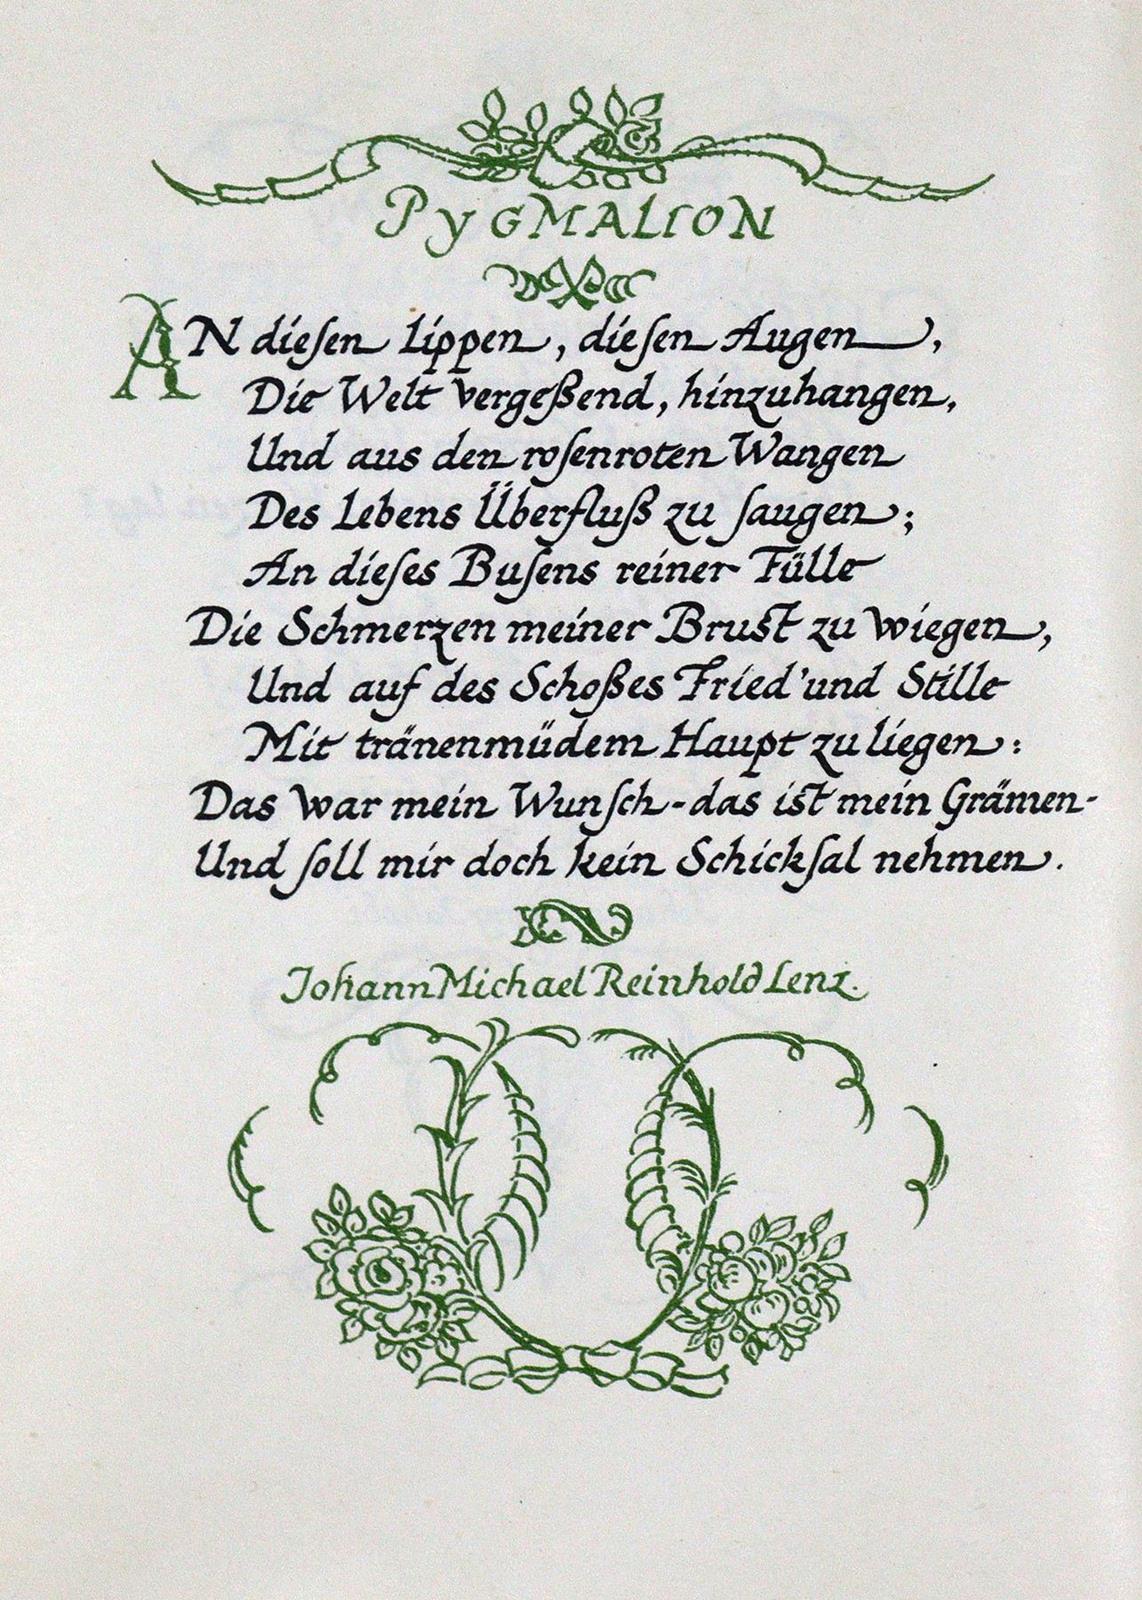 PYGMALION
AN dieſen Lippen, dieſen Augen,
Die Welt vergeßend, hinzuhangen,
Und aus den roſenroten Wangen
Des Lebens Überfluß zu ſaugen;
An dieſes Buſens reiner Fülle
Die Schmerzen meiner Brust zu wiegen,
Und auf des Schoßes Fried' und Stille
Mit tränenmüdem Haupt zu liegen:
Das war mein Wunſch - das ist mein Grämen -
Und ſoll mir doch kein Schickſal nehmen.
Johann Michael Reinhold Lenz.